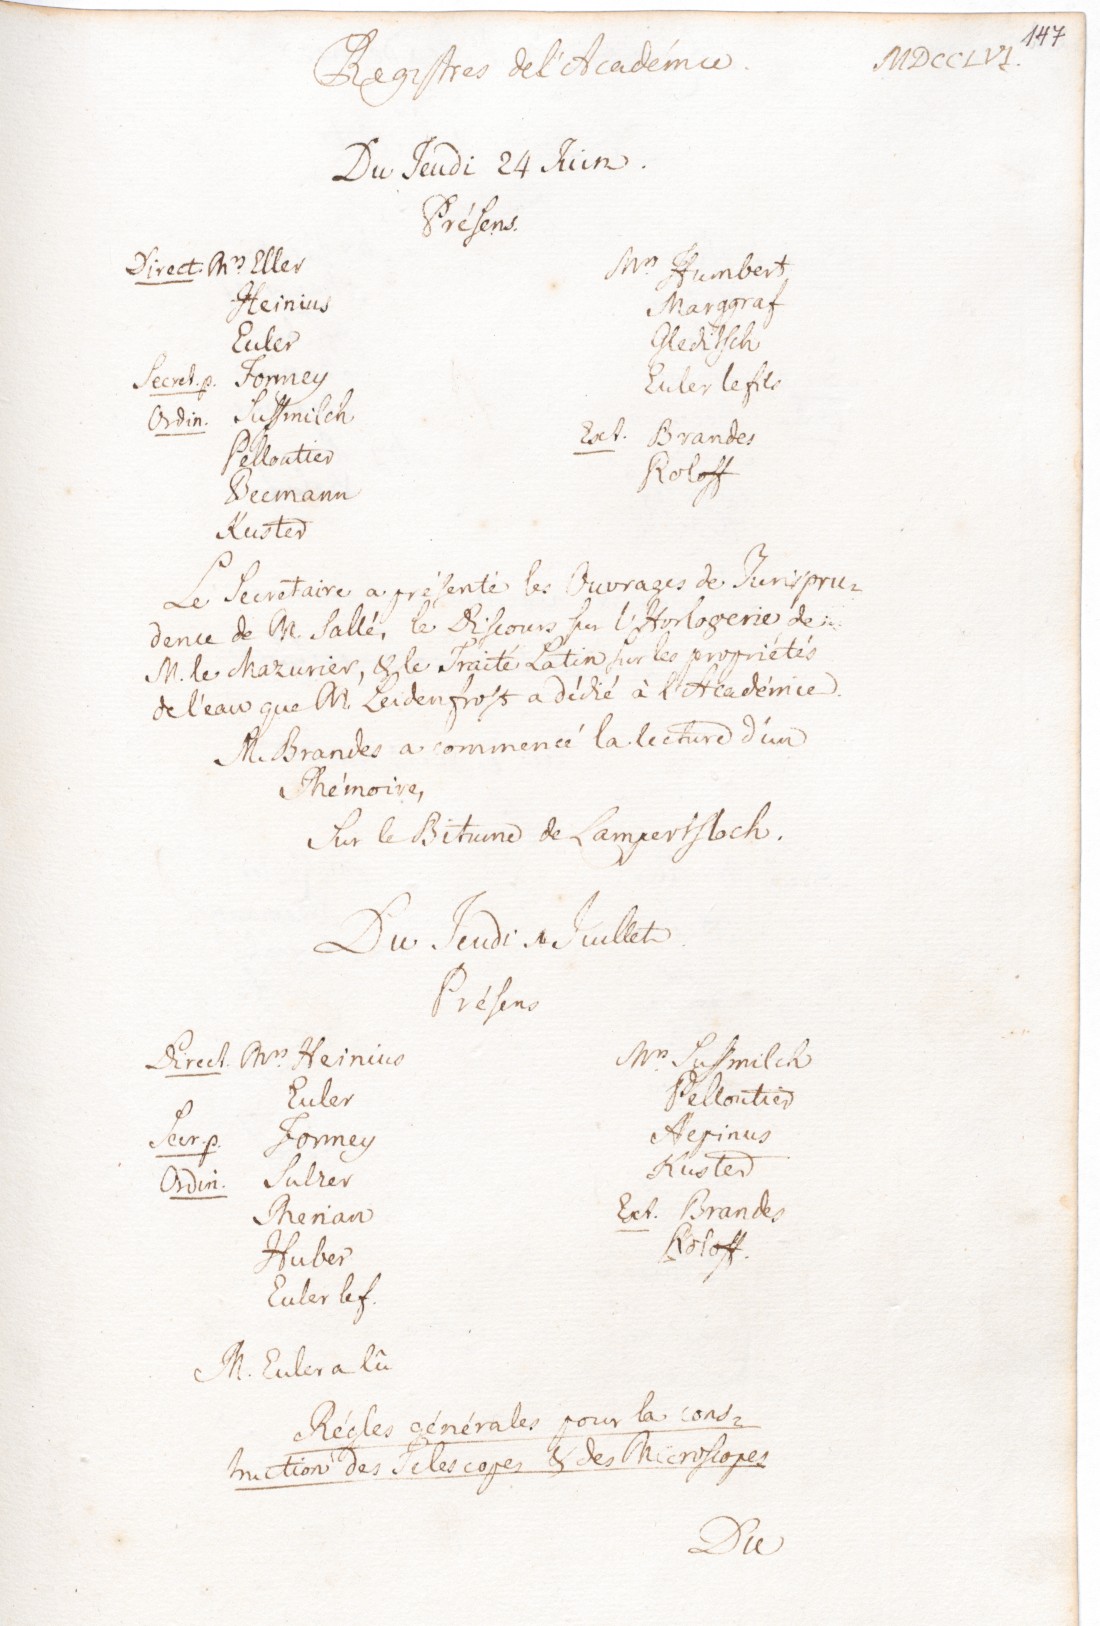 147
Registres de l'Académie. MDCCLVI.
Du Jeudi 24 Juin.
Présens.
Direct. Mrs Eller
Heinius
Euler
Secret. p. Formey
Ordin. Sussmilch
Pelloutier
Becmann
Kuster
Mrs Humbert
Marggraf
Gleditsch
Euler le fils
Ext. Brandes
Roloff
Le Secretaire a présenté les Ouvrages de Jurispru-
dence de M. Sallé, le Discours sur l'Horlogerie de
M. le Mazurier, & le Traité Latin sur les propriétés
de l'eau que M. Leidenfrost a dédié à l'Académie.
M. Brandes a commencé la lecture d'un
Mémoire,
Sur le Bitume de Lampertsloch.
Du Jeudi 1 Juillet
Présens
Direct. Mrs Heinius
Euler
Secr. p. Formey
Ordin. Sulzer
Merian
Huber
Euler le f.
Mrs Sussmilch
Pelloutier
Aepinus
Kuster
Ext. Brandes
Roloff.
M. Euler a lû
Régles générales pour la cons-
truction des Telescopes & des Microscopes
Du